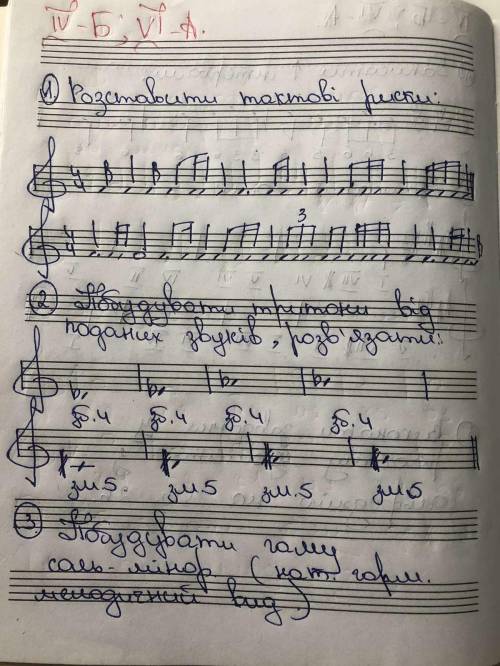 IV-Б; VI-А.
1. Розставити тактові риски:
3
2 Побудувати тритони від
поданих звуків, розв'язати:
зб.4 зб.4 зб.4 зб.4
зм.5. зм.5 зм.5 зм5
3. Побудувати гаму
соль-мінор (нат. гарм.
мелодичний вид.)